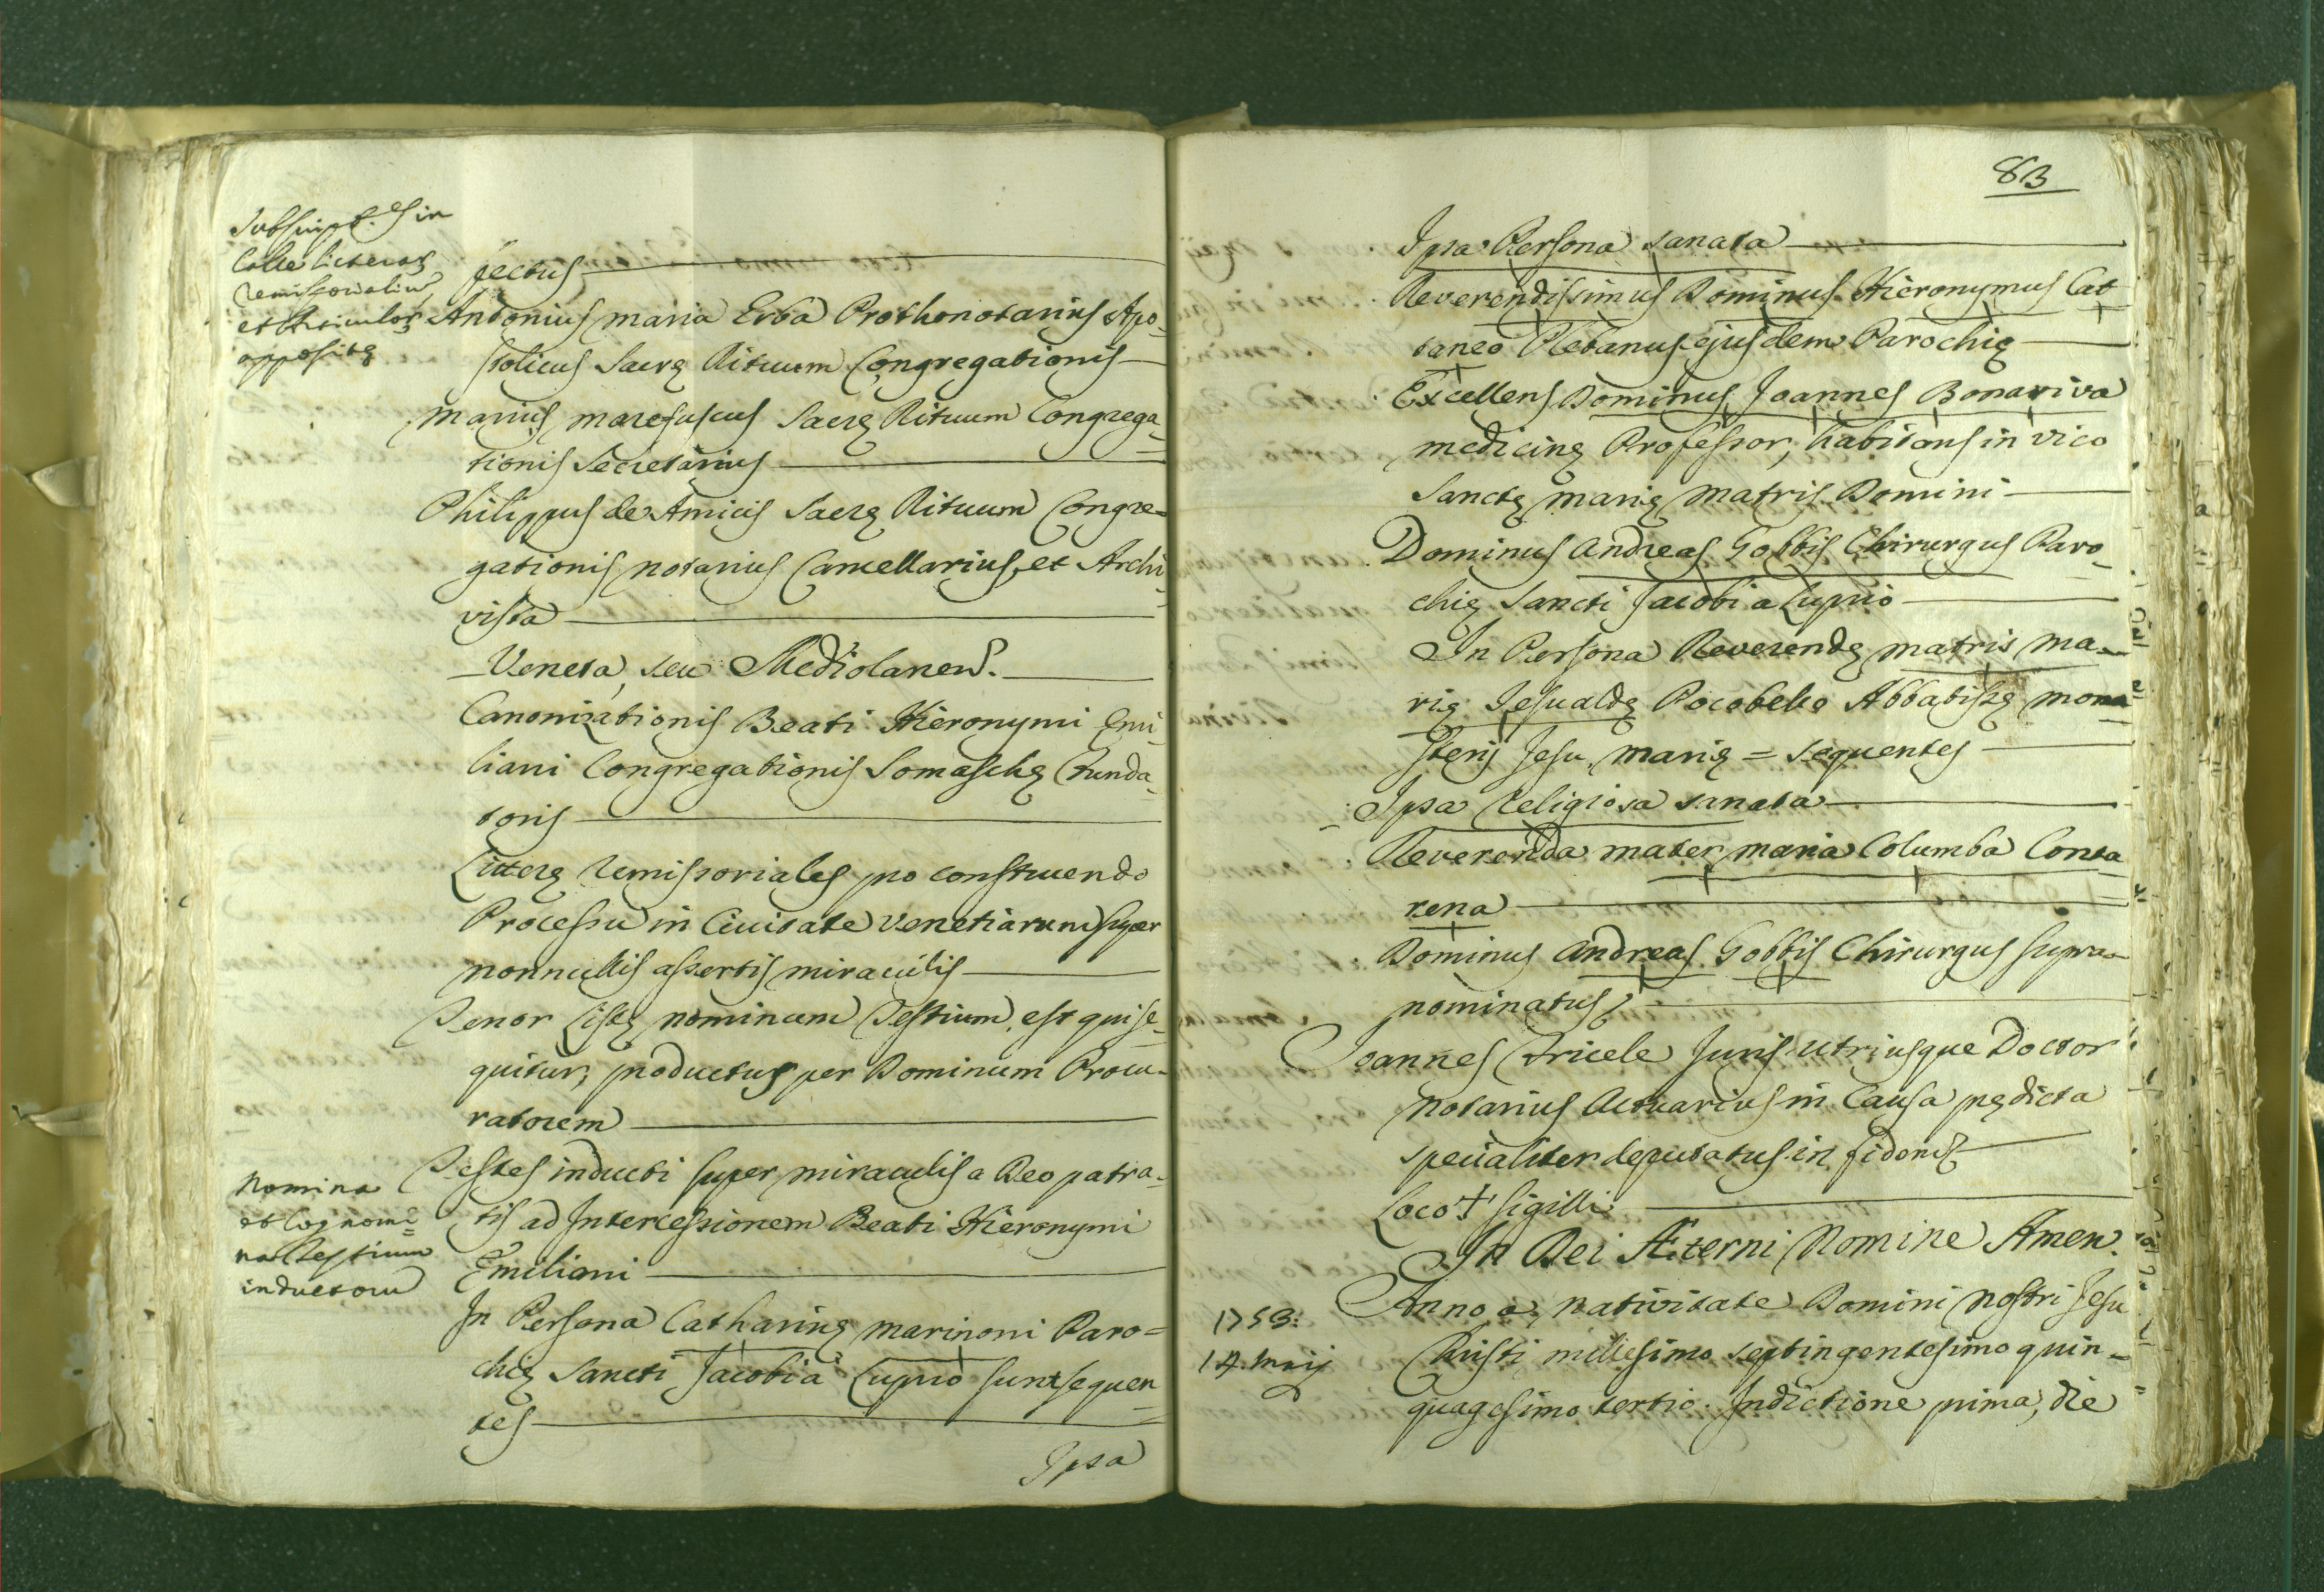 Subscript.es in
Calce literarũ
remissorialiũ
et Articulorũ
appositę
fectus
Antonius Maria Erba Prothonotarius Apo-
stolicus Sacrę Rituum Congregationis
Marius Marefuscus Sacrę Rituum Congrega-
tionis Secretarius
Philippus de Amicis Sacrę Rituum Congre-
gationis Notarius Cancellarius, et Archi-
vista
Veneta, seu Mediolanen.
Canonizationis Beati Hieronymi Emi-
liani Congregationis Somaschę Funda-
toris
Litterę remissoriales pro construendo
Processu in Civitate Venetiarum super
nonnullis assertis miraculis
Tenor Listę nominum Testium, est qui se-
quitur, productus per Dominum Procu-
ratorem
Nomina
et Cognomi=
na Testium
inductorũ
Testes inducti super miraculis a Deo patra-
tis ad Intercessionem Beati Hieronymi
Emiliani
In Persona Catharinę Marinoni Paro=
chię Sancti Jacobi a Luprio sunt sequen=
tes
Ipsa
83
Ipsa Persona sanata
Reverendissimus Dominus Hieronymus Cat
taneo Plebanus ejusdem Parochię
Excellens Dominus Joannes Bonaviva
medicinę Professor, habitans in vico
Sanctę Marię Matris Domini
Dominus Andreas Gobbis Chirurgus Paro-
chię Sancti Jacobi a Luprio
In Persona Reverendę Matris Ma-
rię Jesualdę Pocobello Abbatissę Mona=
sterij Jesu, Marię = sequentes
Ipsa Religiosa sanata
Reverenda mater Maria Columba Conta
rena
Dominus Andreas Gobbis Chirurgus supra-
nominatus
Joannes Tricele Juris utriusque Doctor
Notarius Actuarius in Causa prędicta
specialiter deputatus in fidem
Loco † Sigilli
In Dei Æterni Nomine Amen.
1753:
14. Maij
Anno a nativitate Domini nostri Jesu
Christi millesimo septingentesimo quin-
quagesimo tertio. Indictione prima, die